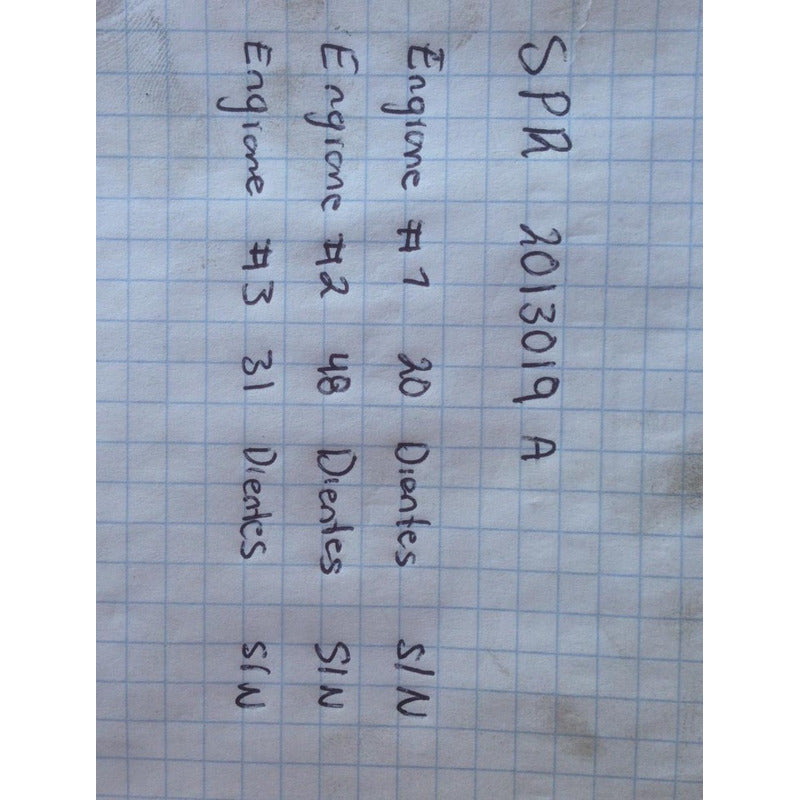 SPR 2013019 A
Engrane #1 20 Dientes S/N
Engrane #2 48 Dientes S/N
Engrane #3 31 Dientes S/N